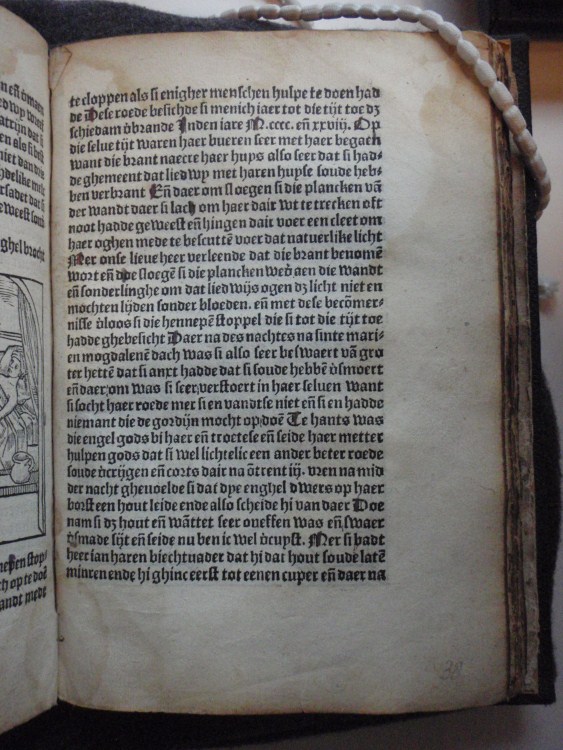 eweest sond
ghel brocht
nepen stop/
ch op te doē
andt mede
te cloppen als si enigher menschen hulpe te doen had
de Dese roede besichde si menich iaer tot die tijt toe dʒ
schiedam ōbrande Inden iare M.cccc. eñ xxviij. Op
die selue tijt waren haer bueren seer met haer begaen
want die brant naecte haer huys also seer dat si had-
de ghemeent dat liedwy met haren huyse soude heb-
ben verbrant Eñ daer om sloegen si die plancken vā
der wandt daer si lach om haer dair wt te trecken oft
noot hadde geweest eñ hingen dair voer een cleet om
haer oghen mede te bescuttē voer dat natuerlike licht
Mer onse lieue heer verleende dat die brant benomē
wort eñ doe sloegē si die plancken weō aen die wandt
eñ sonderlinghe om dat liedwijs ogen dʒ licht niet en
mochten lijden sonder bloeden. eñ met dese becōmer-
nisse ōloos si die hennepē stoppel die si tot die tijt toe
hadde ghebesicht Daer na des nachtes na sinte mari-
en mogdalenē dach was si also seer beswaert vā gro
ter hettē dat si anxt hadde dat si soude hebbē ōsmoert
eñ daer om was si seer verstoert in haer seluen want
si socht haer roede mer si en vandtse niet eñ si en hadde
niemant die de gordijn mocht op doē Te hants was
die engel gods bi haer eñ troctese eñ seide haer metter
hulpen gods dat si wel lichtelic een ander beter roede
soude ōcrijgen eñ corts dair na ōtrent iij. vren na mid
der nacht gheuoelde si dat dye enghel dwers op haer
borst een hout leide ende also scheide hi van daer Doe
nam si dʒ hout eñ wāttet seer oneffen was eñ swaer
ōsmade sijt eñ seide nu ben ic wel ōcuyst. Mer si badt
heer ian haren biechtuader dat hi dat hout soude latē
minren ende hi ghinc eerst tot eenen cuper eñ daer na
38